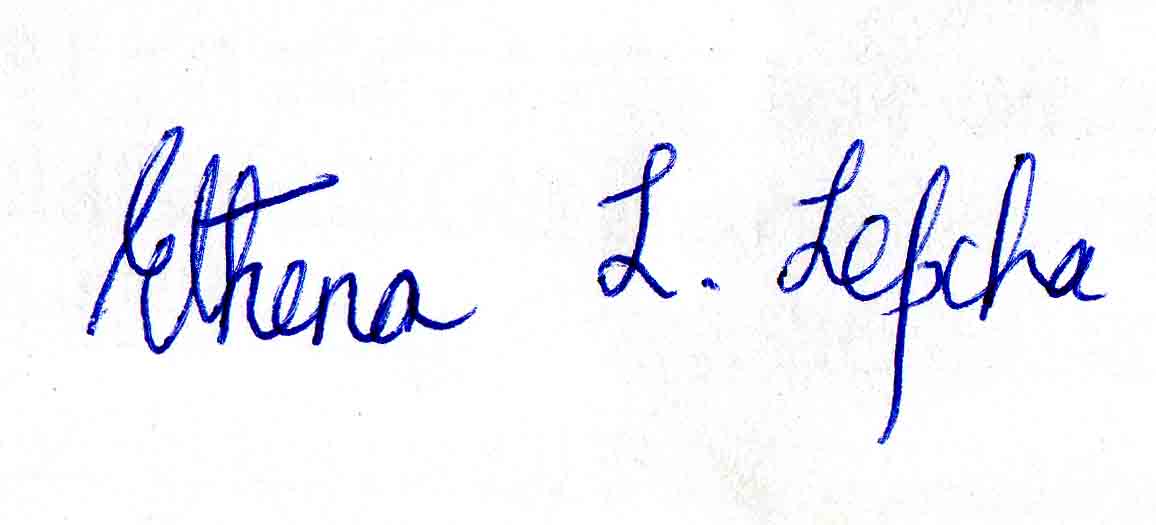 Ethena L. Lepcha